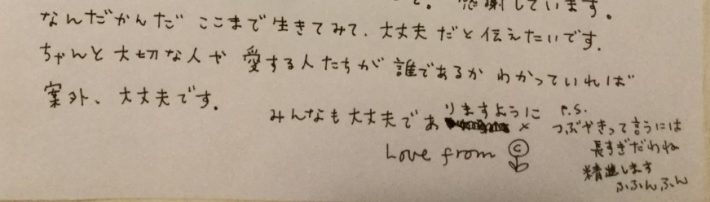 と。感謝しています。
なんだかんだ ここまで生きてみて、大丈夫だと伝えたいです。
ちゃんと大切な人や 愛する人たちが誰であるか わかっていれば
案外、大丈夫です。
みんなも大丈夫でありますように ×
Love from C
P.S.
つぶやきって言うには
長すぎだわね
精進します
ふふんふん